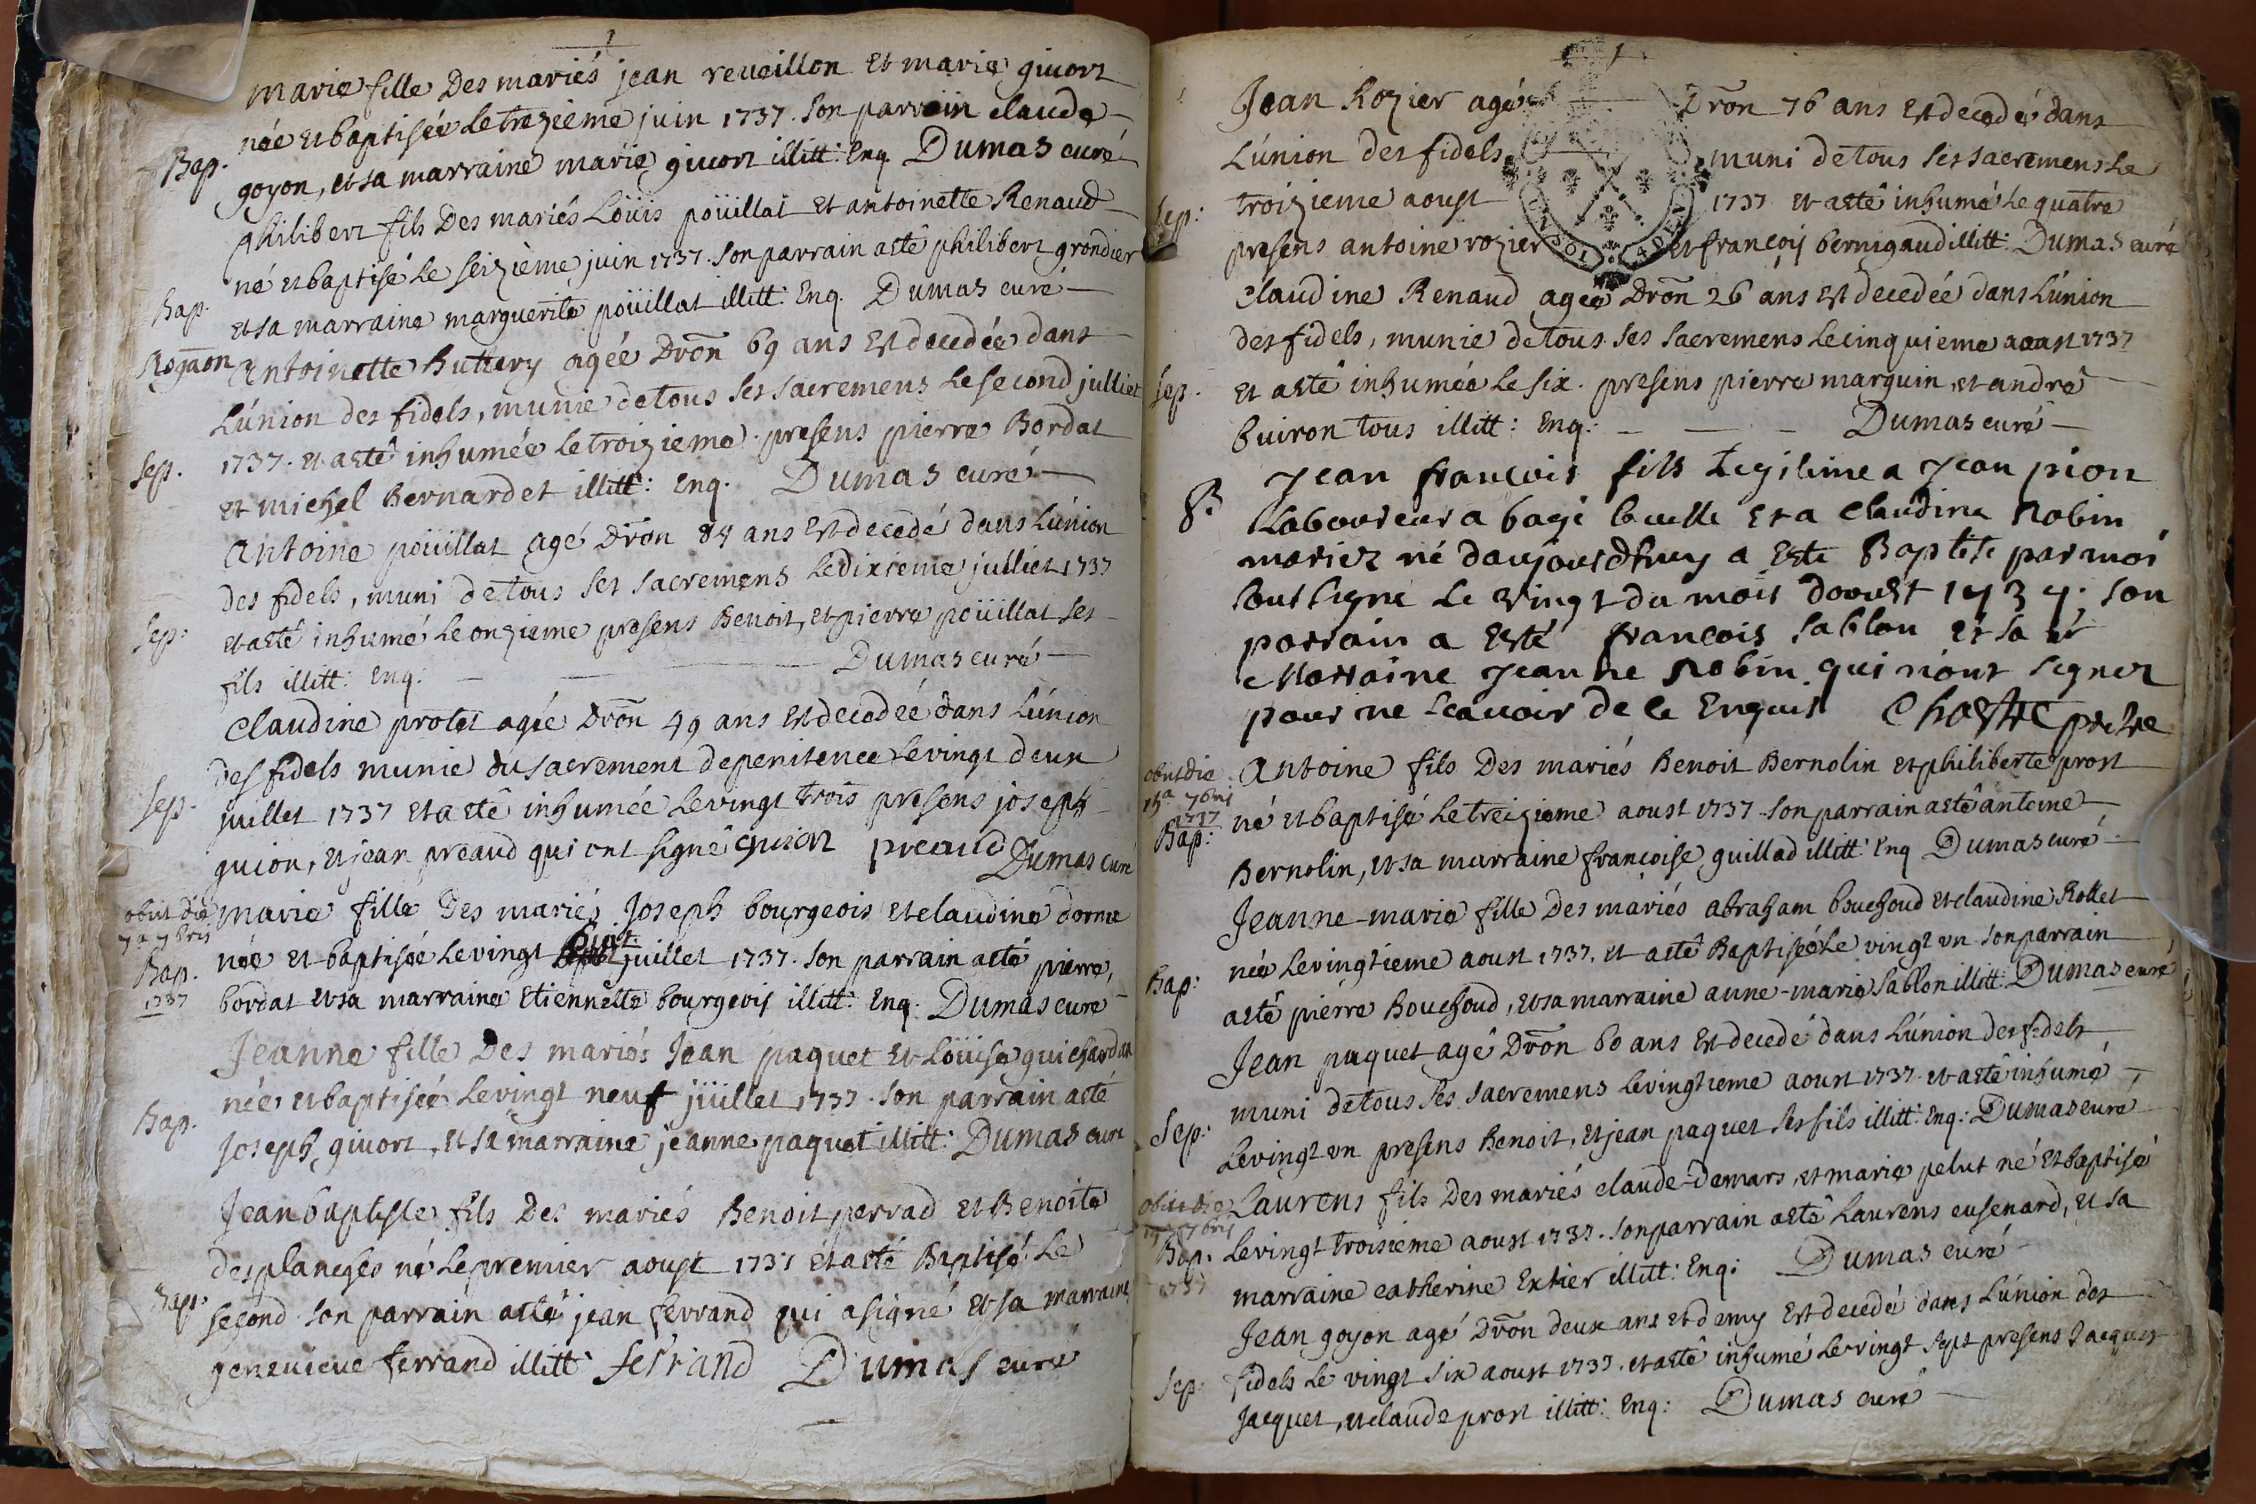 1
marie fille Des mariés jean reveillon et marie givort
née et baptisée Le trezieme juin 1737. Son parrein claude
Bap.
goyon, et sa marraine marie givort illitt: Enq. Dumas curé
philibert fils Des mariés Loüis poüillat et antoinette Renaud
né et baptisé Le seizieme juin 1737. Son parrain a eté philibert grondier
Bap.
et sa marraine marguerite poüillat illitt: Enq. Dumas curé
antoinette Buttery agée Dron 69 ans Est decedée dans
L'union des fidels, munie de tous ses sacremens Le second julliet
Sep.
1737. et a eté inhumée Le troizieme. presens pierre Bordat
et michel Bernardet illitt: Enq. Dumas curé
antoine poüillat agé Dron 84 ans Est decedé dans L'union
des fidels, muni de tous ses sacremens Le dixieme julliet 1737
Sep:
et a eté inhumé Le onzieme presens Benoit, et pierre poüillat ses
fils illitt: Enq: Dumas curé
Claudine protet agée Dron 49 ans Est decedée dans L'union
des fidels munie du sacrement de penitence Le vingt deux
Sep.
juillet 1737 et a eté inhumée Le vingt trois presens joseph
guion, et jean preaud qui ont signé guion preaud Dumas curé
obiit die
7a 7bris
marie fille Des mariés Joseph bourgeois et claudine dorme
Bap.
1737
née et baptisée Le vingt huit juillet 1737. Son parrain a eté pierre
bordat et sa marraine Etiennette bourgeois illitt: Enq: Dumas curé
Jeanne fille Des mariés Jean paquet et Loüise guichardan
née et baptisée Le vingt neuf juillet 1737. Son parrain a eté
Bap.
Joseph givort, et sa marraine jeanne paquet illitt: Dumas curé
Jean baptiste fils Des mariés Benoit perrad et Benoite
desplanches né Le premier aoust 1737 et a eté Baptisé Le
Bap:
second son parrain a eté jean ferrand qui a signé et sa marraine
genevieve ferrand illitt: ferrand Dumas curé
1
Jean Rozier agé Dron 76 ans Est decedé dans
L'union des fidels muni de tous ses sacremens Le
Sep:
troizieme aoust 1737 et a eté inhumé Le quatre
presens antoine rozier et françois bernigaud illitt: Dumas curé
Claudine Renaud agée Dron 26 ans Est decedée dans L'union
des fidels, munie de tous ses sacremens Le cinquieme aoust 1737
Sep.
et a eté inhumée Le six. presens pierre marguin, et andré
buiron tous illitt: Enq: Dumas curé
Jean françois fils Legitime a Jean pion
B.
Laboureur a bagé la ville Et a Claudine Robin
mariez né daujourdhuy a Esté Baptisé par moi
soutsigné Le vingt du mois daoust 1737. son
parrain a Esté françois sablon et sa
Marraine Jeanne Robin qui n'ont signer
pour ne scavoir de ce Enquis prètre
obiit die
7bris
1737
antoine fils Des mariés Benoit Bernolin et philiberte prost
Bap:
né et baptisé Le treizieme aoust 1737 Son parrain a eté antoine
Bernolin, et sa marraine francoise guillad illitt: Enq Dumas curé
Jeanne-marie fille Des mariés abraham bouchoud et claudine Rollet
née Le vingtieme aoust 1737. et a eté Baptisée Le vingt un son parrain
Bap:
a eté pierre Bouchoud, et sa marraine anne-marie Sablon illitt: Dumas curé
Jean paquet agé Dron 60 ans Est decedé dans L'union des fidels
muni de tous ses sacremens Le vingtieme aoust 1737. et a eté inhumé
Sep:
Le vingt un presens Benoit, et jean paquet ses fils illitt: Enq: Dumas curé
obiit die
7bris
Laurens fils Des mariés claude Demars, et marie pelut né et baptisé
Bap.
1737
Le vingt troisieme aoust 1737. Son parrain a eté Laurens eusenard, et sa
marraine catherine Extier illitt: Enq: Dumas curé
Jean goyon agé Dron deux ans et demy Est decedé dans L'union des
Sep:
fidels Le vingt six aoust 1737. et a eté inhumé Le vingt sept presens Jacques
Jacquet, et claude prost illitt: Enq: Dumas curé